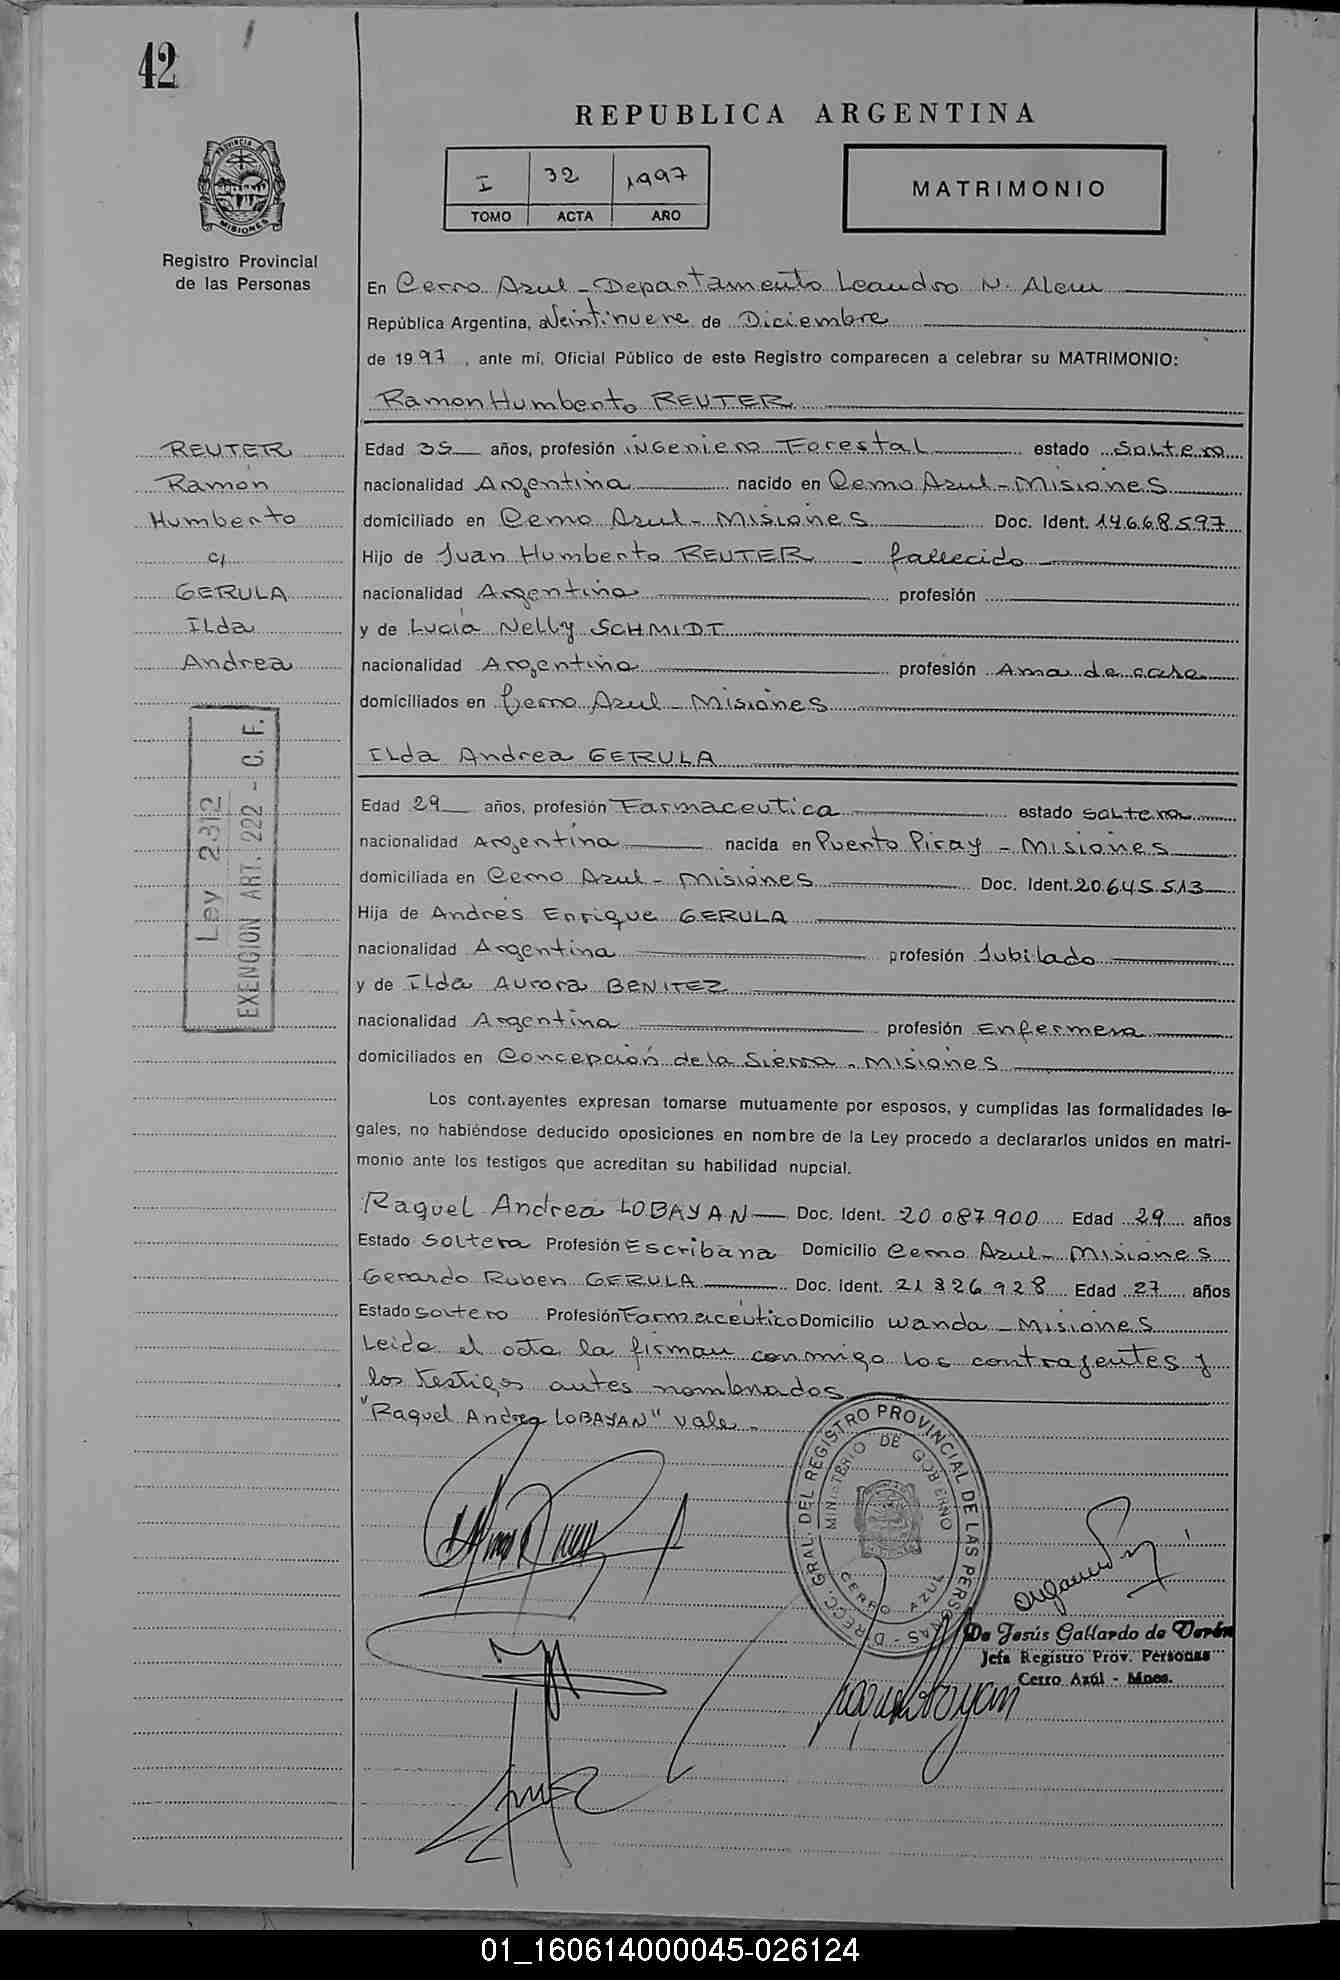 42
REPUBLICA ARGENTINA
PROVINCIA DE
MISIONES
Registro Provincial
de las Personas
I 32 1997
TOMO ACTA AÑO
MATRIMONIO
En Cerro Azul - Departamento Leandro N. Alem
República Argentina, a Veintinueve de Diciembre
de 1997, ante mí, Oficial Público de este Registro comparecen a celebrar su MATRIMONIO:
Ramon Humberto REUTER
REUTER
Ramón
Humberto
c/
GERULA
ILda
Andrea
Ley 2312
EXENCION ART. 222 - C. F.
Edad 35 años, profesión ingeniero Forestal estado Soltero
nacionalidad Argentina nacido en Cerro Azul - Misiones
domiciliado en Cerro Azul - Misiones Doc. Ident. 14.668.597
Hijo de Juan Humberto REUTER - fallecido -
nacionalidad Argentina profesión
y de Lucia Nelly SCHMIDT
nacionalidad Argentina profesión Ama de casa
domiciliados en Cerro Azul - Misiones
ILda Andrea GERULA
Edad 29 años, profesión Farmaceutica estado soltera
nacionalidad Argentina nacida en Puerto Piray - Misiones
domiciliada en Cerro Azul - Misiones Doc. Ident. 20.645.513
Hija de Andrés Enrique GERULA
nacionalidad Argentina profesión Jubilado
y de ILda Aurora BENITEZ
nacionalidad Argentina profesión Enfermera
domiciliados en Concepción de la Sierra - Misiones
Los cont.ayentes expresan tomarse mutuamente por esposos, y cumplidas las formalidades le-
gales, no habiéndose deducido oposiciones en nombre de la Ley procedo a declararlos unidos en matri-
monio ante los testigos que acreditan su habilidad nupcial.
Raquel Andrea LOBAYAN Doc. Ident. 20.087.900 Edad 29 años
Estado Soltera Profesión Escribana Domicilio Cerro Azul - Misiones
Gerardo Ruben GERULA Doc. Ident. 21.326.928 Edad 27 años
Estado Soltero Profesión Farmacéutico Domicilio Wanda - Misiones
Leida el acta la firman conmigo los contrayentes y
los testigos antes nombrados
"Raquel Andrea LOBAYAN" vale -
DRECC. GRAL. DEL REGISTRO PROVINCIAL DE LAS PERSONAS -
MINISTERIO DE GOBIERNO
CERRO AZUL
De Jesús Gallardo de Verón
Jefa Registro Prov. Personas
Cerro Azúl - Mnes.
01_160614000045-026124